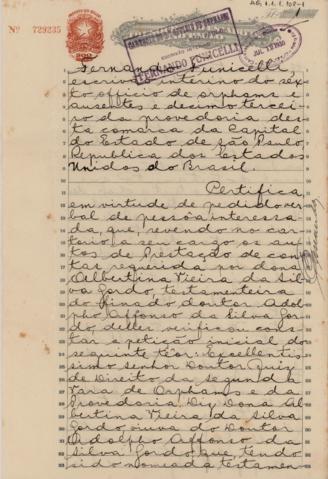 AG. 1.1.1. 108-1
Nº 729235
FERNANDO FUNICELLI
Fernando Funicelli,
escrivão interino do sex
to officio de orphams e
ausentes e decimo tercei
ro da provedoria des
ta comarca da Capital
do Estado de São Paulo,
Republica dos Estados
Unidos do Brasil.
Certifica,
em virtude de pedido ver
bal de pessôa interessa
da, que, revendo no car
torio a seu cargo os au
tos de Prestação de con
tas requerida por dona
Albertina Vieira da Sil
va Gordo, testamenteira
do finado doutor Adol
pho Affonso da Silva Gor
do delles verificou cons
tar a petição inicial do
seguinte têor: Excellentis
simo senhor Doutor Juiz
de Direito da Segunda
Vara de Orphams e da
Provedoria. Diz Dona Al
bertina Vieira da Silva
Gordo, viuva do Doutor
Adolpho Affonso da
Silva Gordo que, tendo
sido nomeada testamen